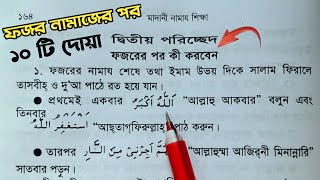 ফজর নামাজের পর
১০ টি দোয়া
১৬৪
মাদানী নামায শিক্ষা
দ্বিতীয় পরিচ্ছেদ
ফজরের পর কী করবেন
১. ফজরের নামায শেষে তথা ইমাম উভয় দিকে সালাম ফিরালে
তাসবীহ ও দু'আ পাঠে রত হয়ে যান।
● প্রথমেই একবার اَللّٰهُ اَكْبَرُ “আল্লাহু আকবার” বলুন এবং
তিনবার اَسْتَغْفِرُ اللّٰهَ “আছতাগফিরুল্লাহ” পাঠ করুন।
● তারপর اَللّٰهُمَّ اَجِرْنِىْ مِنَ النَّارِ “আল্লাহুম্মা আজিরনী মিনান্নারি”
সাতবার পড়ুন।